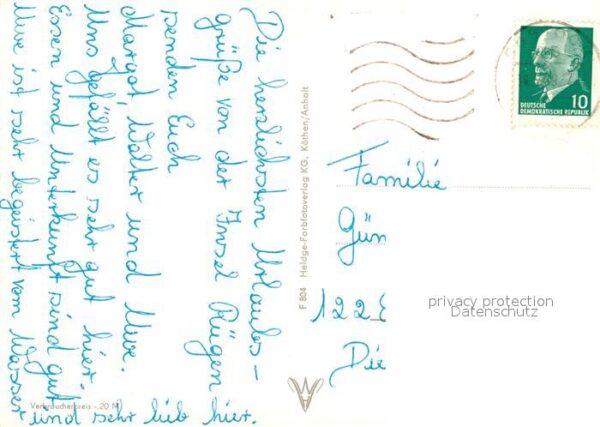 Die herzlichsten Urlaubs-
grüße von der Insel Rügen
senden Euch
Margot, Walter und Uwe.
Uns gefällt es sehr gut hier.
Essen und Unterkunft sind gut
Uwe ist sehr begeistert vom Wasser
und sehr lieb hier.
Verbraucherpreis -,20 M
F 804 Heldge-Farbfotoverlag KG., Köthen/Anhalt
10
DEUTSCHE
DEMOKRATISCHE REPUBLIK
Familie
Gün
122
Die
privacy protection
Datenschutz